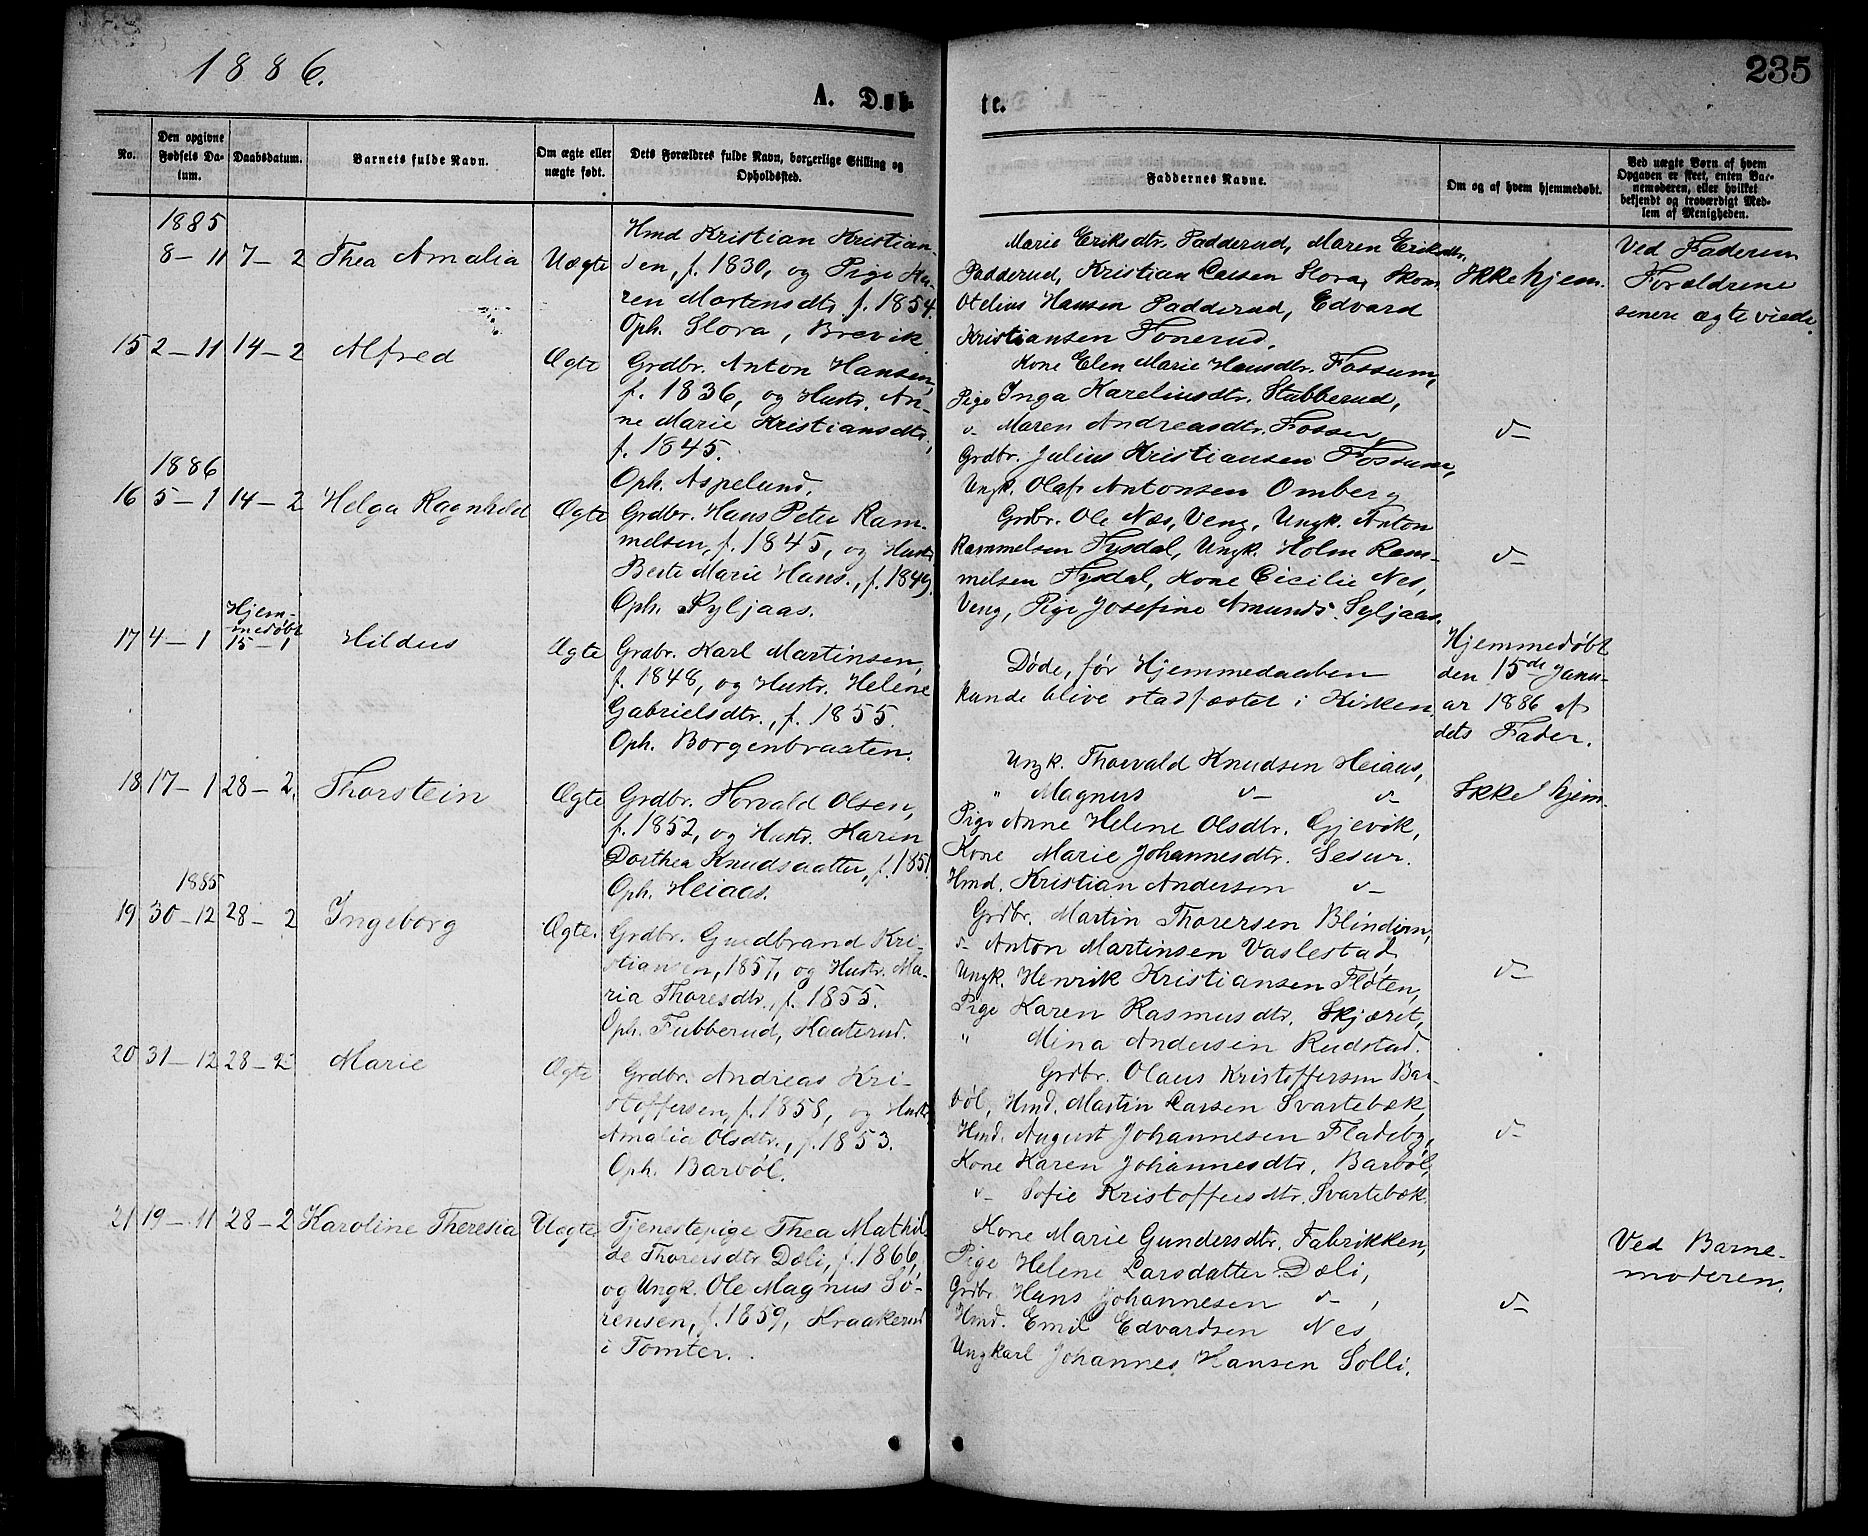 1886.
235
A. Døb-
te.
No.
Den opgivne Fødsels Datum.
Daabsdatum.
Barnets fulde Navn.
Om ægte eller uægte født.
Dets Forældres fulde Navn, borgerlige Stilling og Opholdssted.
Faddernes Navne.
Om og af hvem hjemmedøbt.
Ved uægte Børn af hvem Opgaven er skeet, enten Barnemoderen, eller hvilket bekjendt og troværdigt Medlem af Menigheden.
1885
8-11 7-2 Thea Amalia Uægte
Hmd Kristian Kristian-
sen, f. 1830, og Pige Ka-
ren Martensdtr. f. 1854.
Oph. Slora, Brevik
Marie Eriksdtr. Padderud, Maren Eriksdtr.
Padderud, Kristian Larsen Slora, Skom.
Otelius Hansen Padderud, Edvard
Kristiansen Tonerud.
Ikke hjem.
Ved Faderen
Forældrene
senere ægteviede.
15 2-11 14-2 Alfred Ægte
Grdbr. Anton Hansen,
f. 1836, og Hustr. An-
ne Marie Kristiansdtr.,
f. 1845.
Oph. Aspelund.
Kone Elen Marie Hansdtr. Fossum,
Pige Inga Kareliusdtr. Stubberud,
v- Maren Andreasdtr. Fosser,
Grdbr. Julius Kristiansen Fossum,
Ungk. Olaf Antonsen Omberg
v-
1886
16 5-1 14-2 Helga Ragnhild Ægte
Grdbr. Hans Peter Ram-
melsen, f. 1845, og Hustr.
Berte Marie Hans., f. 1849.
Oph. Syljaas.
Grdbr. Ole Næs, Veng, Ungk. Anton
Rammelsen Tysdal, Ungk. Holm Ram-
melsen Tysdal, Kone Cicilie Nes,
Veng, Pige Josefine Amunds. Syljaas.
v-
17 4-1
Hjem-
medøbt
15-1
Hildus Ægte
Grdbr. Karl Martinsen,
f. 1848, og Hustr. Helene
Gabrielsdtr., f. 1855.
Oph. Borgenbraaten.
Døde, før Hjemmedaaben
kunde blive stadfæstet i Kirken.
Hjemmedøbt
den 15de Janu-
ar 1886 af
dets Fader.
18 17-1 28-2. Thorstein Ægte
Grdbr. Horvald Olsen,
f. 1852, og Hustr. Karen
Dorthea Knudsdatter, f. 1851
Oph. Heiaas.
Ungk. Thorvald Knudsen Heiaas,
" Magnus v- v-
Pige Anne Helene Olsdtr. Gjevik,
Kone Marie Johannesdtr. Sesur.
Hmd. Kristian Andersen v-
Ikke hjem.
1885
19 30-12 28-2 Ingeborg Ægte.
Grdbr. Gudbrand Kri-
stiansen, 1857, og Hustr. Ma-
ria Thoresdtr., f. 1855.
Oph. Tubberud, Kaaterud.
Grdbr. Martin Thorersen Blindern,
v- Anton Martinsen Vaslestad,
Ungk. Henrik Kristiansen Fløten,
Pige Karen Rasmusdtr. Skjæret,
" Mina Andersen Rudstad.
v-
20 31-12 28-2 Marie Ægte
Grdbr. Andreas Kri-
stoffersen, f. 1858, og Hustr.
Amalia Olsdtr., f. 1853.
Oph. Barbøl.
Grdbr. Olaus Kristoffersen Bar-
bøl, Hmd. Martin Larsen Svartebæk,
Hmd. August Johannesen Fladeby,
Kone Karen Johannesdtr. Barbøl,
v- Sofie Kristoffersdtr. Svartebæk.
v-
21 19-11 28-2 Karoline Theresia Uægte
Tjenestepige Thea Mathil-
de Thorersdtr. Dæli, f. 1866,
og Ungk. Ole Magnus Sø-
rensen, f. 1859, Kraakerud
i Tomter.
Kone Marie Gundersdtr. Fabrikken,
Pige Helene Larsdatter Dæli,
Grdbr. Hans Johannesen v-,
Hmd. Emil Edvardsen Nes,
Ungkarl Johannes Hansen Solli.
v-
Ved Barne-
moderen.